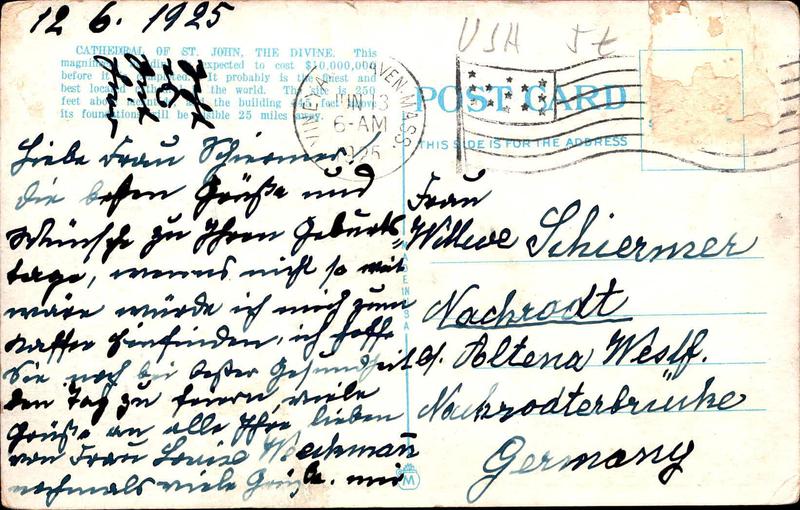 12. 6. 1925
CATHEDRAL OF ST. JOHN, THE DIVINE. This
expected to cost $10,000,000
before it is completed. It probably is the finest and
best located in the world. The site is 250
feet above and the building feet above
its foundations will be visible 25 miles away.
VINEYARD HAVEN MASS.
JUN 13
6-AM
1925
USA
POST CARD
THIS SIDE IS FOR THE ADDRESS
Liebe Frau Schiermer!
die besten Grüße und
Wünsche zu Ihren Geburts-
tage, wenns nicht so weit
wäre würde ich mich zum
Kaffee hinfinden, ich hoffe
Sie noch bei bester Gesundheit
den Tag zu feiern viele
Grüße an alle Ihre lieben
von Frau Louise
nochmals viele Grüße.
Frau
Witwe Schiermer
Nachrodt
a/ Altena Westf.
Nachrodterbrücke
Germany